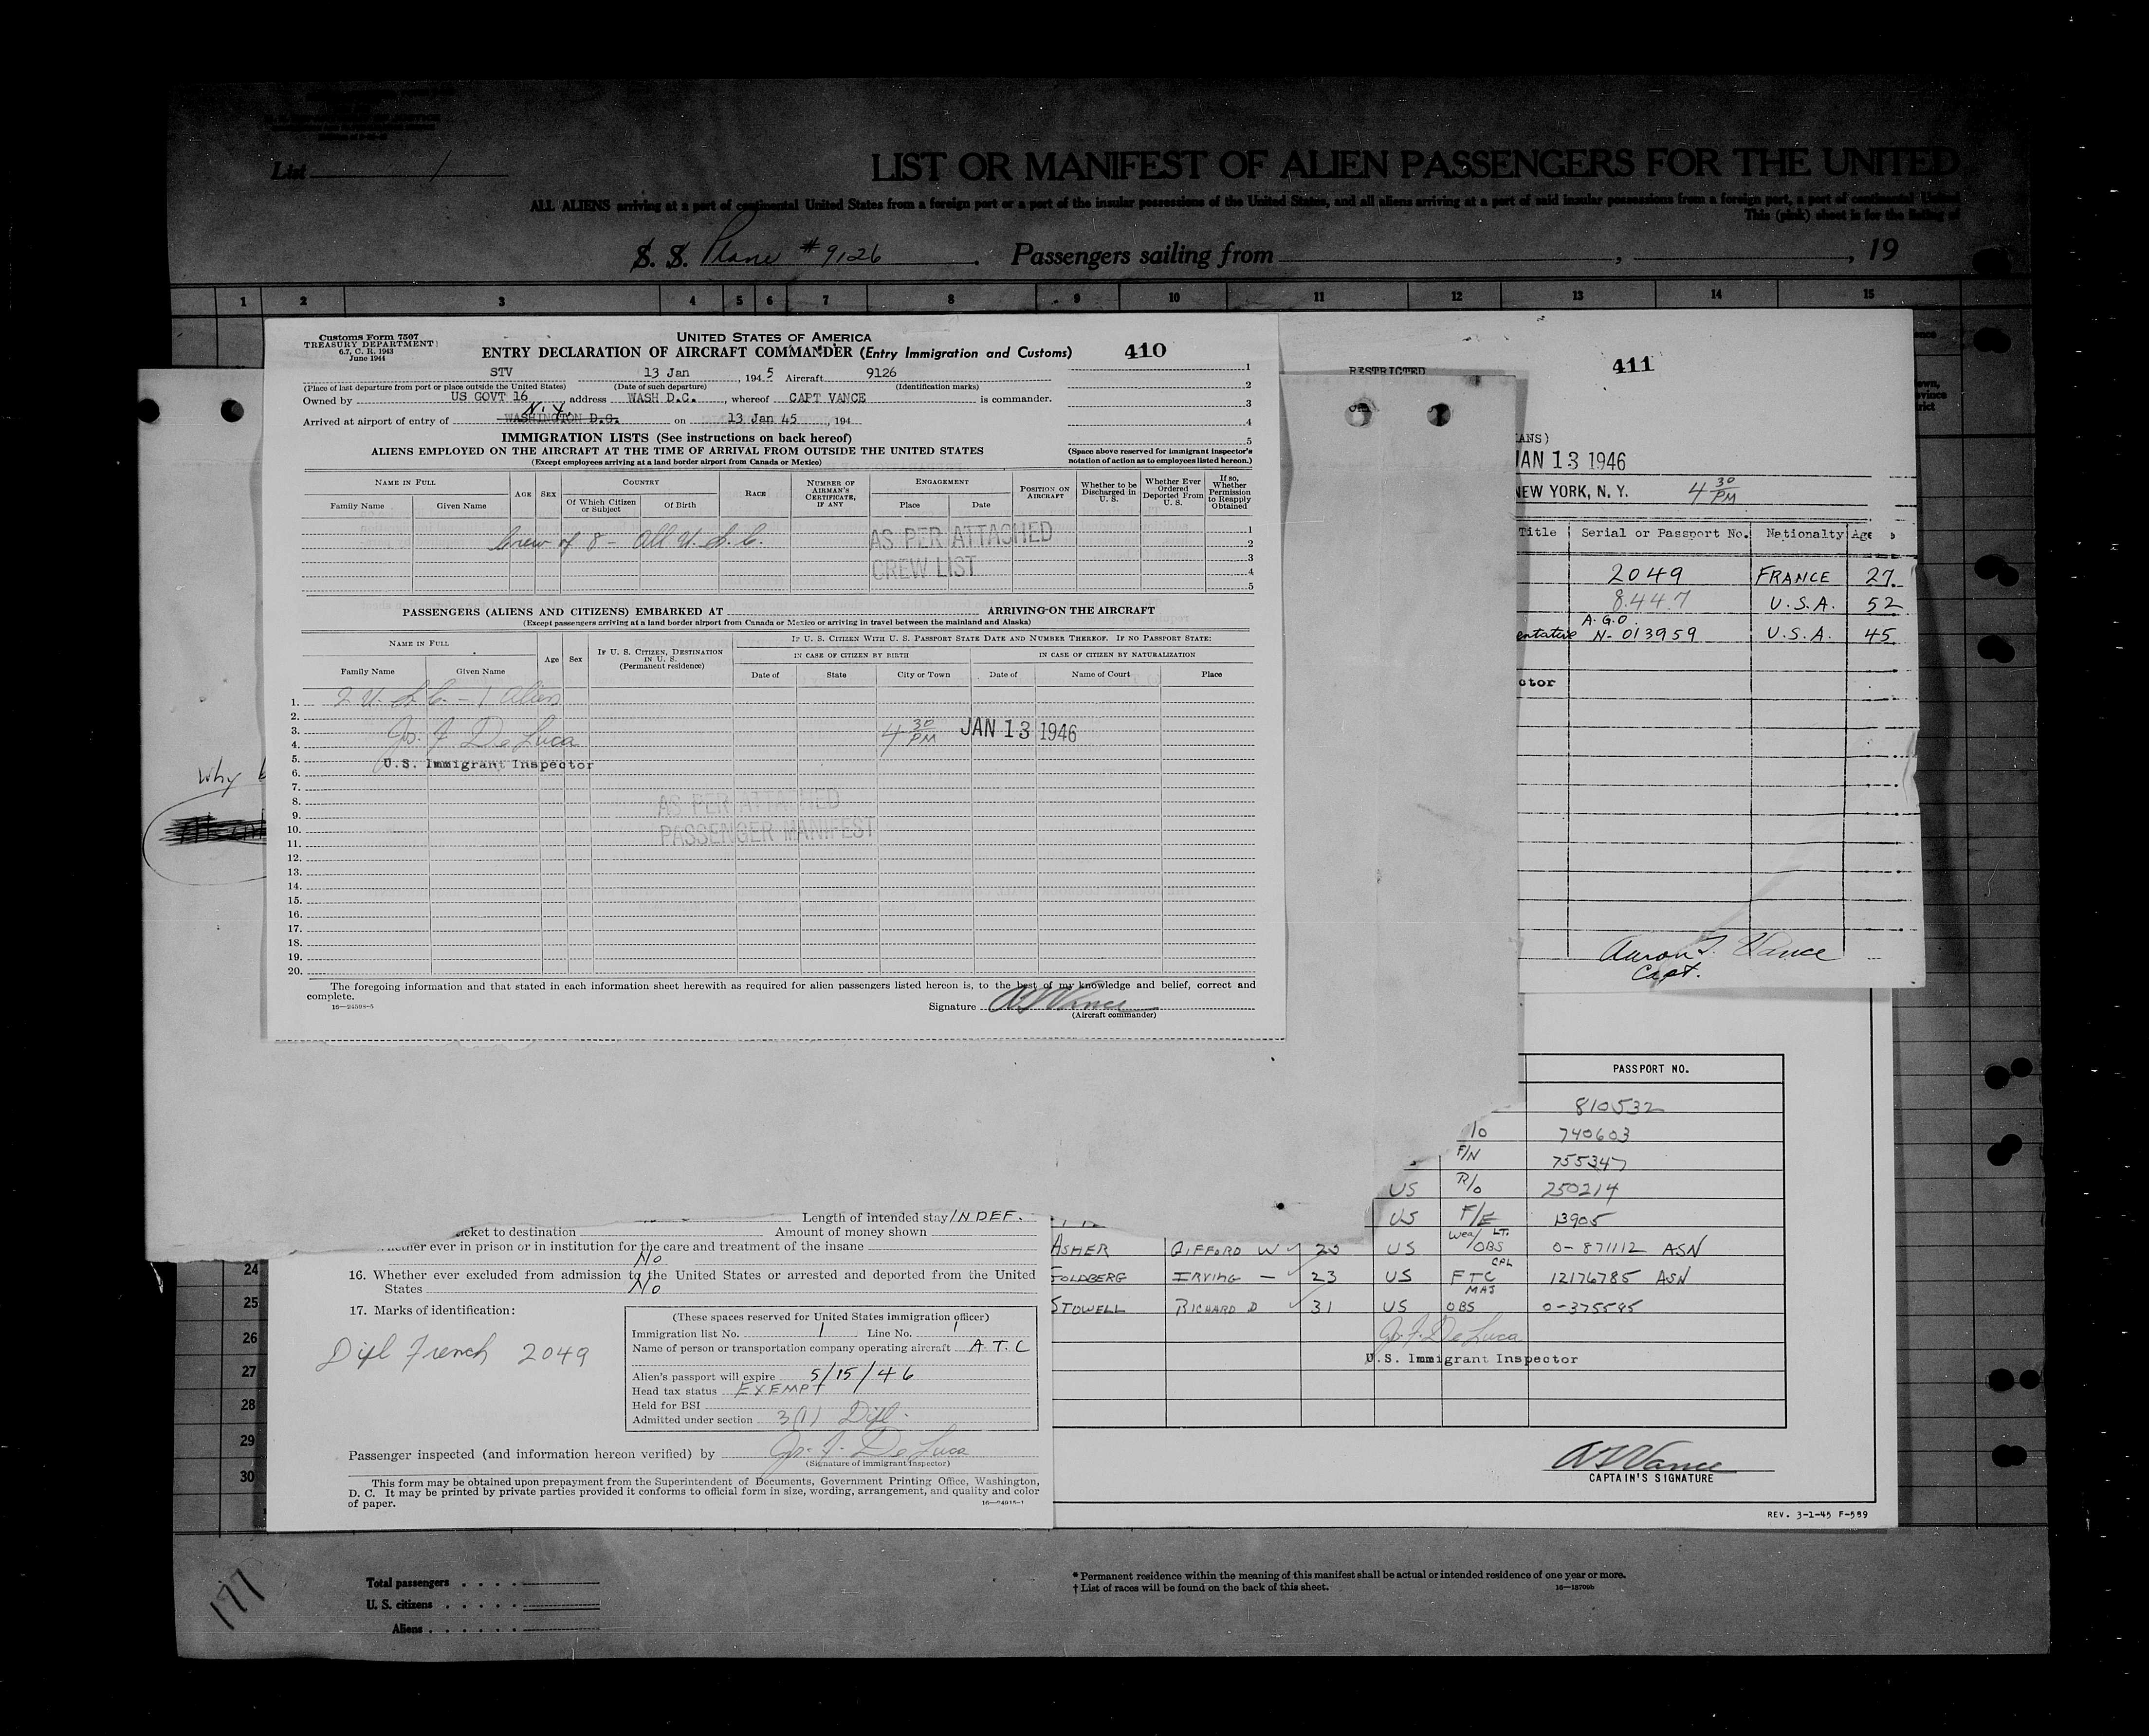 List 1
LIST OR MANIFEST OF ALIEN PASSENGERS FOR THE UNITED
ALL ALIENS arriving at a port of continental United States from a foreign port or a port of the insular possessions of the United States, and all aliens arriving at a port of said insular possessions from a foreign port, a port of continental United
This (pink) sheet is for the listing of
S. S. Plane #9126 . Passengers sailing from , , 19
1 2 3 4 5 6 7 8 9 10 11 12 13 14 15
Customs Form 7507
TREASURY DEPARTMENT
6.7, C. R. 1943
June 1944
UNITED STATES OF AMERICA
ENTRY DECLARATION OF AIRCRAFT COMMANDER (Entry Immigration and Customs)
410
STV 13 Jan , 194 5 Aircraft 9126
(Place of last departure from port or place outside the United States) (Date of such departure) (Identification marks)
Owned by US GOVT 16 , address WASH D.C. , whereof CAPT VANCE is commander.
N.Y.
Arrived at airport of entry of WASHINGTON D.C. on 13 Jan 45 , 194
1
2
3
4
5
(Space above reserved for immigrant inspector's notation of action as to employees listed hereon.)
IMMIGRATION LISTS (See instructions on back hereof)
ALIENS EMPLOYED ON THE AIRCRAFT AT THE TIME OF ARRIVAL FROM OUTSIDE THE UNITED STATES
(Except employees arriving at a land border airport from Canada or Mexico)
NAME IN FULL
Family Name Given Name
AGE SEX
COUNTRY
Of Which Citizen or Subject Of Birth
RACE
NUMBER OF AIRMAN'S CERTIFICATE, IF ANY
ENGAGEMENT
Place Date
POSITION ON AIRCRAFT
Whether to be Discharged in U. S.
Whether Ever Ordered Deported From U. S.
If so, Whether Permission to Reapply Obtained
Crew of 8 - All U.S.C.
AS PER ATTACHED
CREW LIST
1
2
3
4
5
PASSENGERS (ALIENS AND CITIZENS) EMBARKED AT ARRIVING ON THE AIRCRAFT
(Except passengers arriving at a land border airport from Canada or Mexico or arriving in travel between the mainland and Alaska)
NAME IN FULL
Family Name Given Name
Age Sex
IF U. S. CITIZEN, DESTINATION IN U. S.
(Permanent residence)
IF U. S. CITIZEN WITH U. S. PASSPORT STATE DATE AND NUMBER THEREOF. IF NO PASSPORT STATE:
IN CASE OF CITIZEN BY BIRTH IN CASE OF CITIZEN BY NATURALIZATION
Date of State City or Town Date of Name of Court Place
1. 2 U.S.C. - 1 Alien
2.
3. Jos. F. DeLuca 4 30 PM JAN 13 1946
4.
5. U.S. Immigrant Inspector
6.
7.
8. AS PER ATTACHED
9.
10. PASSENGER MANIFEST
11.
12.
13.
14.
15.
16.
17.
18.
19.
20.
The foregoing information and that stated in each information sheet herewith as required for alien passengers listed hereon is, to the best of my knowledge and belief, correct and
complete.
16—24598-5
Signature A T Vance
(Aircraft commander)
Why
RESTRICTED
411
ANS)
JAN 13 1946
NEW YORK, N. Y. 4 30 PM
Title Serial or Passport No. Nationalty Age
2049 FRANCE 27
8447 U.S.A. 52
A.G.O.
entative N- 013959 U.S.A. 45
ctor
Aaron T. Vance
Capt.
PASSPORT NO.
810532
/o 740603
F/N 755347
US R/o 250214
US F/E 13905
ASHER GIFFORD W 20 US Wea/ LT. OBS 0-871112 ASN
GOLDBERG IRVING — 23 US CPL FTC 12176785 ASN
STOWELL RICHARD D 31 US MAJ OBS 0-375595
Jos. F. DeLuca
U.S. Immigrant Inspector
A T Vance
CAPTAIN'S SIGNATURE
REV. 3-1-45 F-599
Length of intended stay INDEF.
icket to destination Amount of money shown
ther ever in prison or in institution for the care and treatment of the insane
No
16. Whether ever excluded from admission to the United States or arrested and deported from the United
States No
17. Marks of identification:
Dipl French 2049
(These spaces reserved for United States immigration officer)
Immigration list No. 1 Line No. 1
Name of person or transportation company operating aircraft A.T.C
Alien's passport will expire 5/15/46
Head tax status EXEMPT
Held for BSI
Admitted under section 3(1) Dipl.
Passenger inspected (and information hereon verified) by Jos. F. DeLuca
(Signature of immigrant inspector)
This form may be obtained upon prepayment from the Superintendent of Documents, Government Printing Office, Washington,
D. C. It may be printed by private parties provided it conforms to official form in size, wording, arrangement, and quality and color
of paper.
16—24915-1
24
25
26
27
28
29
30
177
Total passengers
U. S. citizens
Aliens
* Permanent residence within the meaning of this manifest shall be actual or intended residence of one year or more.
† List of races will be found on the back of this sheet.